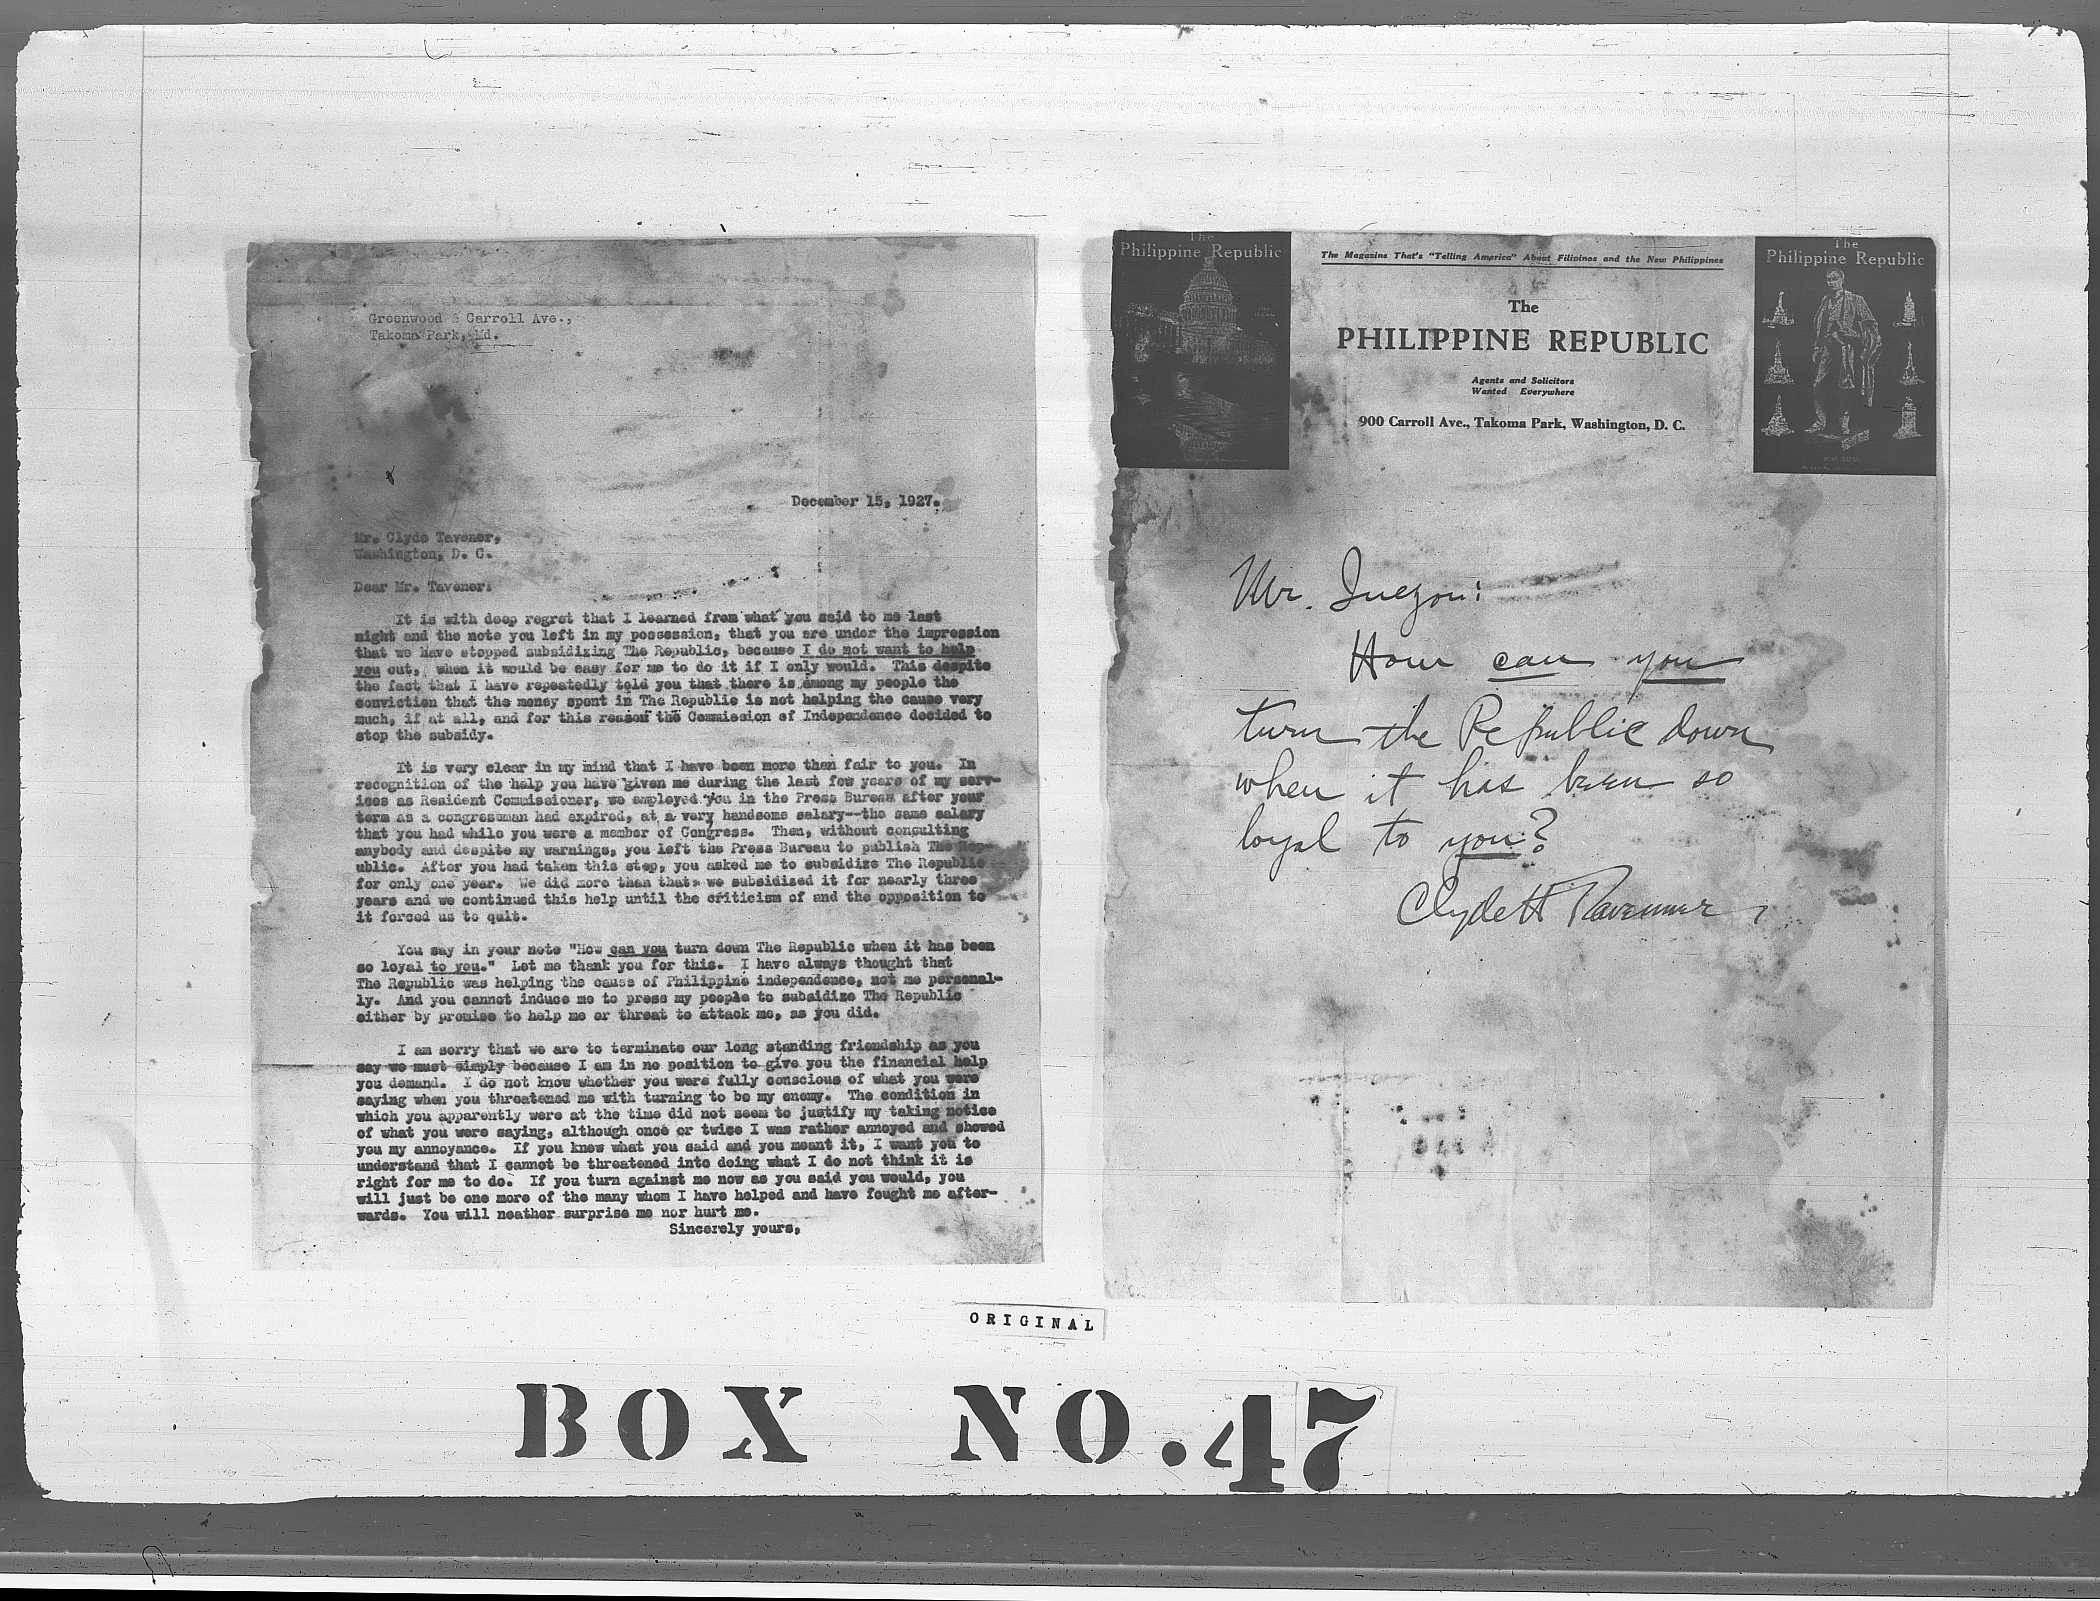 Greenwood & Carroll Ave.,
Takoma Park, Md.
December 15, 1927.
Mr. Clyde Tavener,
Washington, D. C.
Dear Mr. Tavener:
It is with deep regret that I learned from what you said to me last
night and the note you left in my possession, that you are under the impression
that we have stopped subsidizing The Republic, because I do not want to help
you out, when it would be easy for me to do it if I only would. This despite
the fact that I have repeatedly told you that there is among my people the
conviction that the money spent in The Republic is not helping the cause very
much, if at all, and for this reason the Commission of Independence decided to
stop the subsidy.
It is very clear in my mind that I have been more than fair to you. In
recognition of the help you have given me during the last few years of my serv-
ices as Resident Commissioner, we employed you in the Press Bureau after your
term as a congressman had expired, at a very handsome salary--the same salary
that you had while you were a member of Congress. Then, without consulting
anybody and despite my warnings, you left the Press Bureau to publish The Rep-
ublic. After you had taken this step, you asked me to subsidize The Republic
for only one year. We did more than that, we subsidized it for nearly three
years and we continued this help until the criticism of and the opposition to
it forced us to quit.
You say in your note "How can you turn down The Republic when it has been
so loyal to you." Let me thank you for this. I have always thought that
The Republic was helping the cause of Philippine independence, not me personal-
ly. And you cannot induce me to press my people to subsidize The Republic
either by promise to help me or threat to attack me, as you did.
I am sorry that we are to terminate our long standing friendship as you
say we must simply because I am in no position to give you the financial help
you demand. I do not know whether you were fully conscious of what you were
saying when you threatened me with turning to be my enemy. The condition in
which you apparently were at the time did not seem to justify my taking notice
of what you were saying, although once or twice I was rather annoyed and showed
you my annoyance. If you knew what you said and you meant it, I want you to
understand that I cannot be threatened into doing what I do not think it is
right for me to do. If you turn against me now as you said you would, you
will just be one more of the many whom I have helped and have fought me after-
wards. You will neather surprise me nor hurt me.
Sincerely yours,
The
Philippine Republic
The Magazine That's "Telling America" About Filipinos and the New Philippines
The
PHILIPPINE REPUBLIC
Agents and Solicitors
Wanted Everywhere
900 Carroll Ave., Takoma Park, Washington, D. C.
The
Philippine Republic
Mr. Quezon:
How can you
turn the Republic down
when it has been so
loyal to you?
Clyde H Tavenner
ORIGINAL
BOX NO. 47